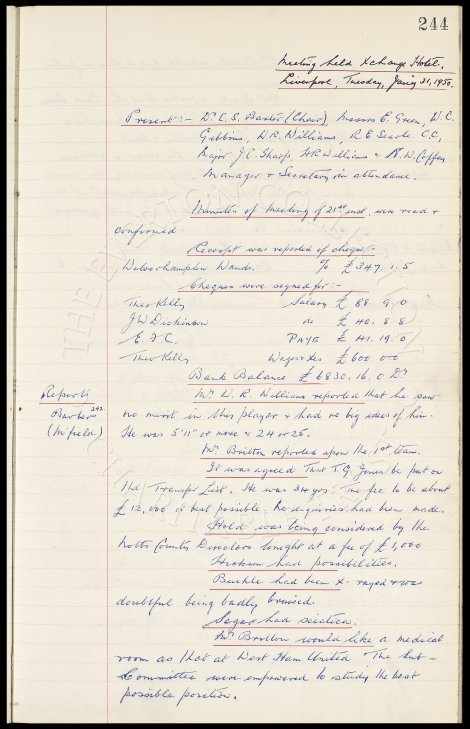 244
Meeting held Xchange Hotel,
Liverpool, Tuesday, Jan'y 31, 1950.
Present :- Dr. C. S. Baxter (Chair) Messrs E. Green, W. C.
Gibbins, W. R. Williams, R. E. Searle C.C,
Major J. C. Sharp, H R Williams & N. W. Coffey
Manager & Secretary in attendance.
Minutes of Meeting of 21st inst, were read &
confirmed
Receipt was reported of cheque:-
Wolverhampton Wands. % £347. 1. 5
Cheques were signed for :-
Theo Kelly Salary £ 88. 9. 0
J W Dickinson do £ 40. 8. 8
E. F. C. PAYE £ 41. 19. 0
Theo Kelly Wages & Exs £ 600. 0. 0
Bank Balance £ 6830. 16. 0 Dr
Reports Mr W. R. Williams reported that he saw
Barber 242 no merit in this player & had no big ideas of him.
(Mfield) He was 5'11" or more & 24 or 25.
Mr Britton reported upon the 1st team.
It was agreed That T. G. Jones be put on
the Transfer List. He was 34 yrs. The fee to be about
£ 12,000 or best possible; no inquiries had been made.
Hold was being considered by the
Notts County Directors tonight at a fee of £ 1,000
Hickson had possibilities.
Buckle had been X-rayed & was
doubtful being badly bruised.
Sagar had sciatica.
Mr Britton would like a medical
room as that at West Ham United The Sub-
Committee were empowered to study the best
possible position.
THE EVERTON COLLECTION